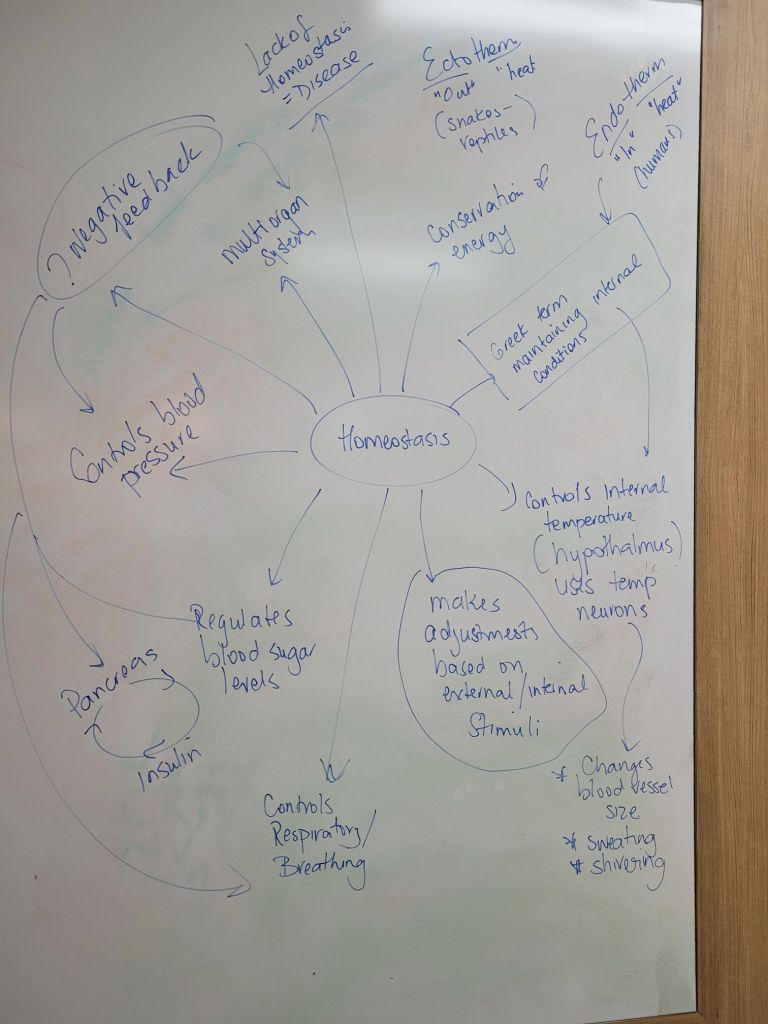 Lack of
Homeostasis
= Disease
Ectotherm
"Out" "heat
(snakes-
reptiles)
Endotherm
"In" "heat"
(humans)
? Negative
feedback
multiorgan
system
Conservation of
energy
Greek term
maintaining internal
conditions
Homeostasis
Controls blood
pressure
Controls Internal
temperature
(hypothalmus)
uses temp
neurons
makes
adjustments
based on
external/internal
Stimuli
Regulates
blood sugar
levels
Pancreas
Insulin
Controls
Respiratory/
Breathing
* Changes
blood vessel
size
* sweating
* shivering